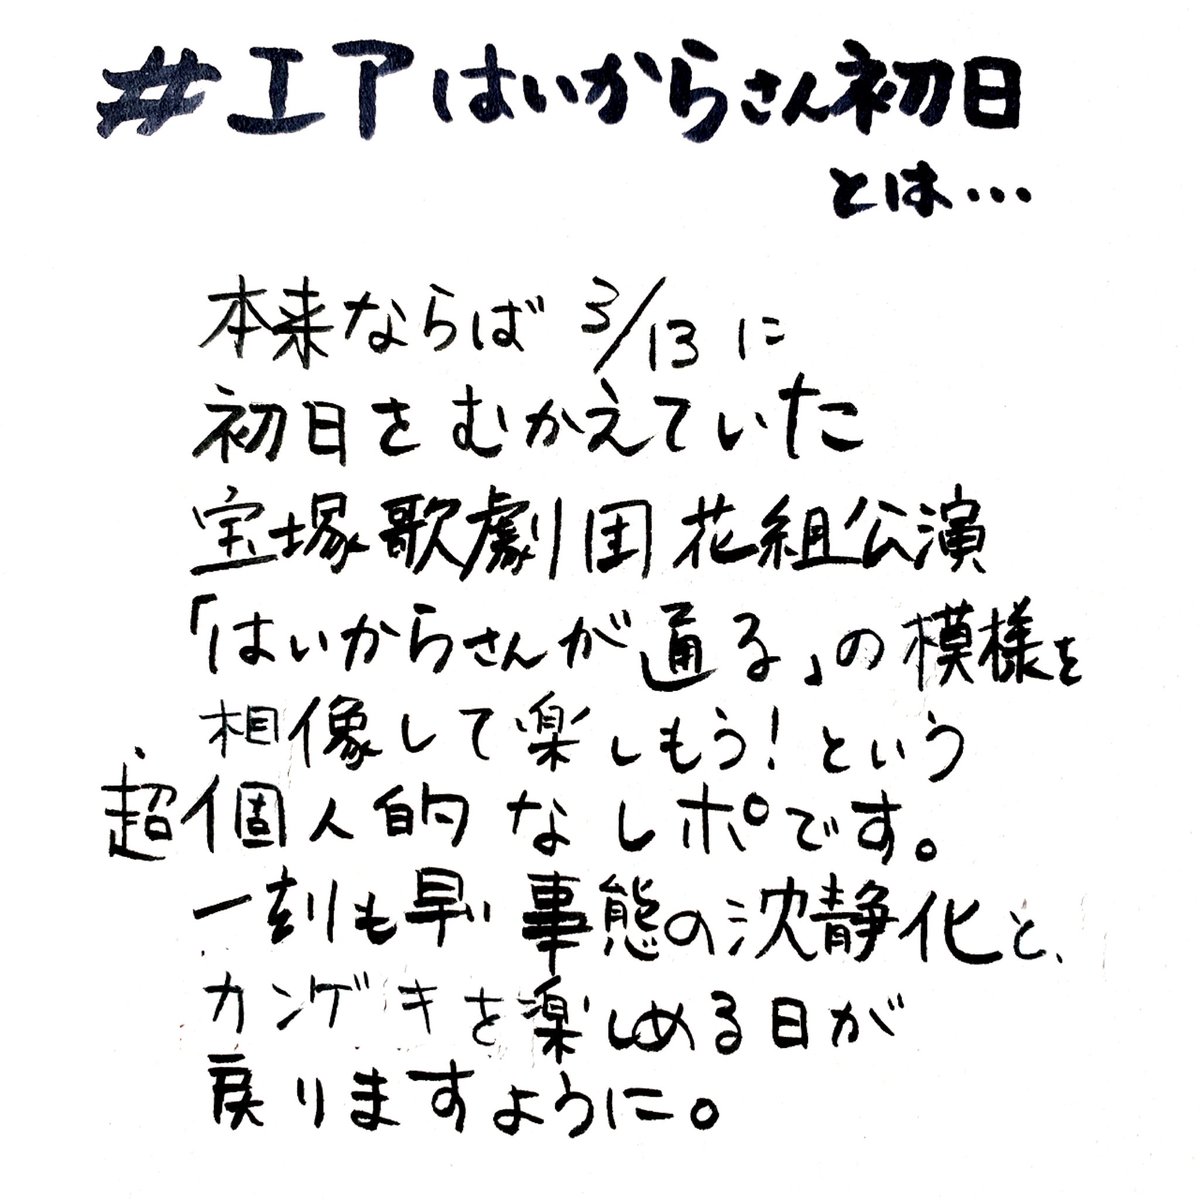 #エアはいからさん初日
とは…
本来ならば 3/13 に
初日をむかえていた
宝塚歌劇団 花組公演
「はいからさんが通る」の模様を
想像して楽しもう!という
超個人的なレポです。
一刻も早い事態の沈静化と、
カンゲキを楽しめる日が
戻りますように。